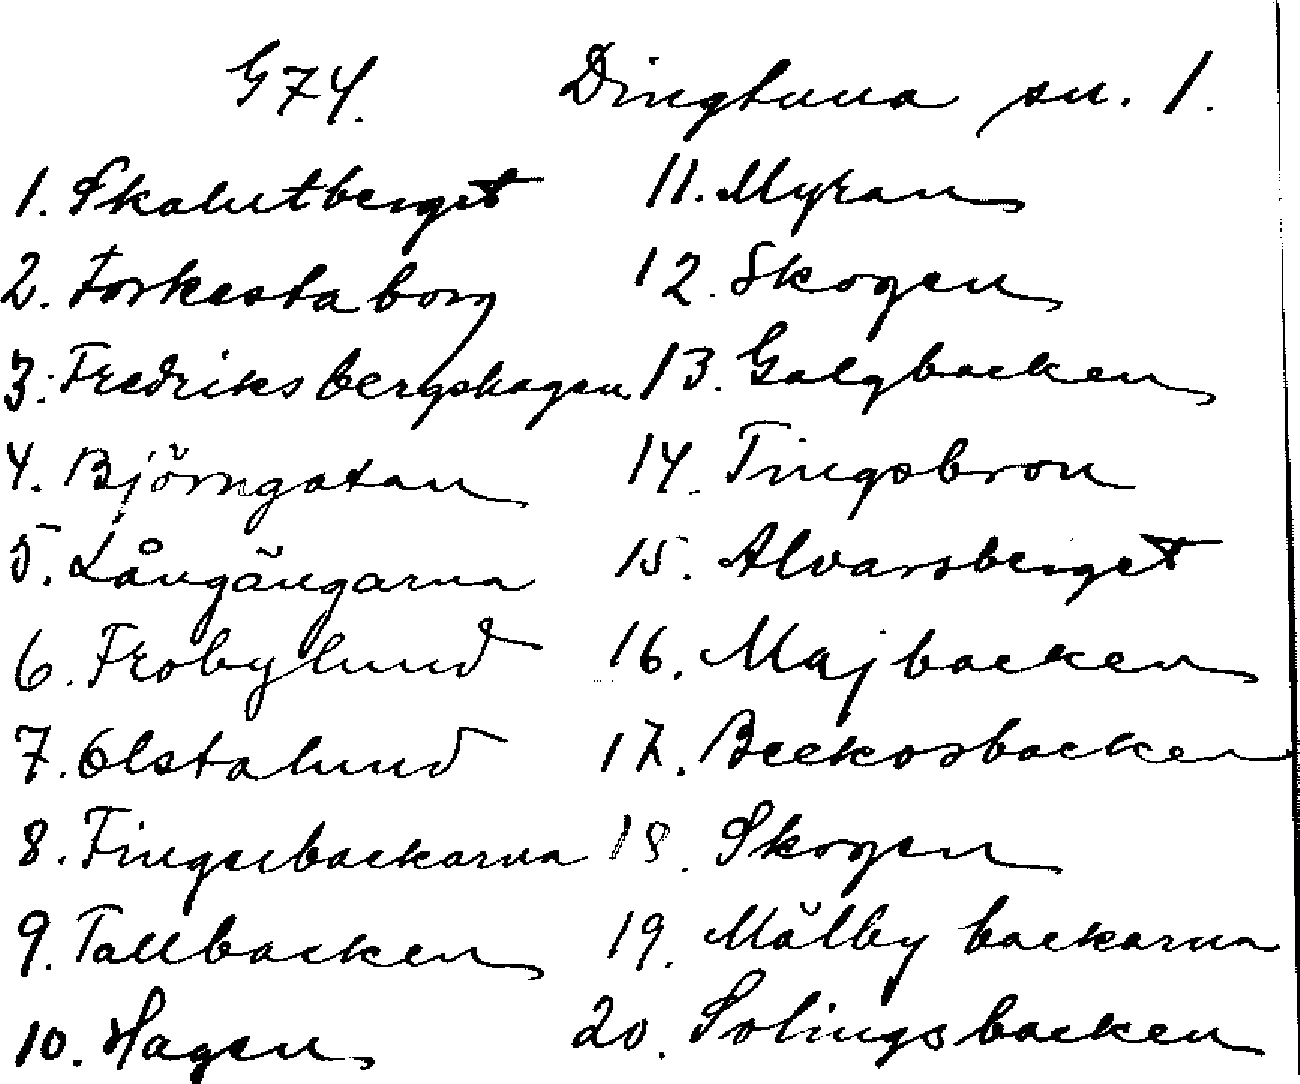 G74. Dingtuna sn. 1.
1. Skalutberget
2. Forkesta borg
3. Fredriksbergshagen
4. Björngatan
5. Långängarna
6. Frobylund
7. Olstalund
8. Fingerbackarna
9. Tallbacken
10. Hagen
11. Myran
12. Skogen
13. Galgbacken
14. Tingsbron
15. Alvarsberget
16. Majbacken
17.
18. Skogen
19. Mälby backarna
20. Solingsbacken